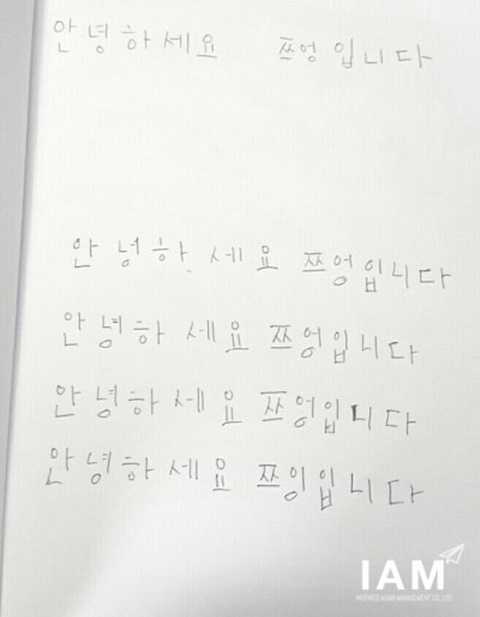 안녕하세요 쯔엉 입니다
안녕하세요 쯔엉입니다
안녕하세요 쯔엉입니다
안녕하세요 쯔엉입니다
안녕하세요 쯔잉입니다
IAM